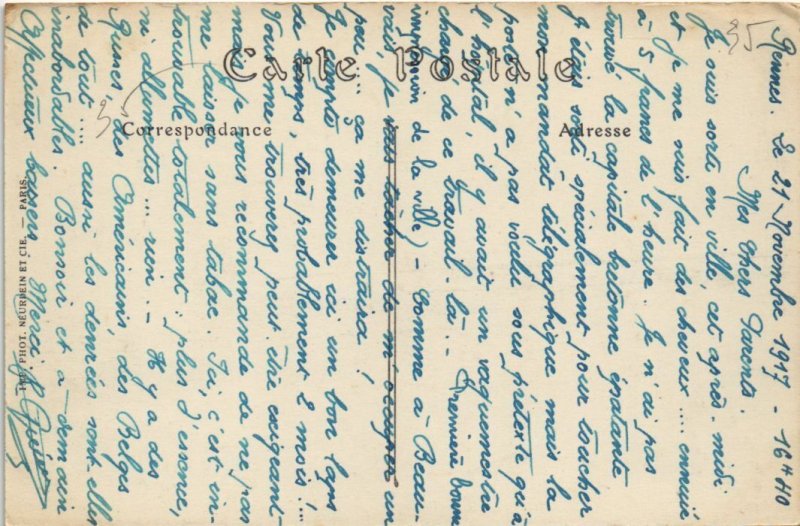 35
3
Carte Postale
Correspondance
Adresse
IMP. PHOT. NEURDEIN ET CIE. — PARIS.
Rennes. Le 21 Novembre 1917 - 16H40
Mes chers Parents.
Je suis sorti en ville, cet après-midi
et je me suis fait des cheveux .... ennuié
à 5 francs de l'heure. Je n'ai pas
trouvé la capitale bretonne épatante
J'étais sorti spécialement pour toucher
mon mandat télégraphique mais la
poste n'a pas voulu sous prétexte qu'à
l'hôpital, il y avait un vaguemestre
chargé de ce travail-là.-
impression de la ville) - Comme à Beau-
vais, je vais tâcher de m'occuper un
peu ... ça me distraira !
Je compte demeurer ici un bon laps
de temps, très probablement 2 mois !...
Vous me trouverez peut être exigeant
mais, je vous recommande de ne pas
me laisser sans tabac. Ici, c'est in-
trouvable totalement : plus d'essence,
ni allumettes ... rien .- Il y a des
Russes, des Américains, des Belges
de tout .... aussi les denrées sont-elles
inabordables. Bonsoir et à demain
Affectueux baisers. Merci.